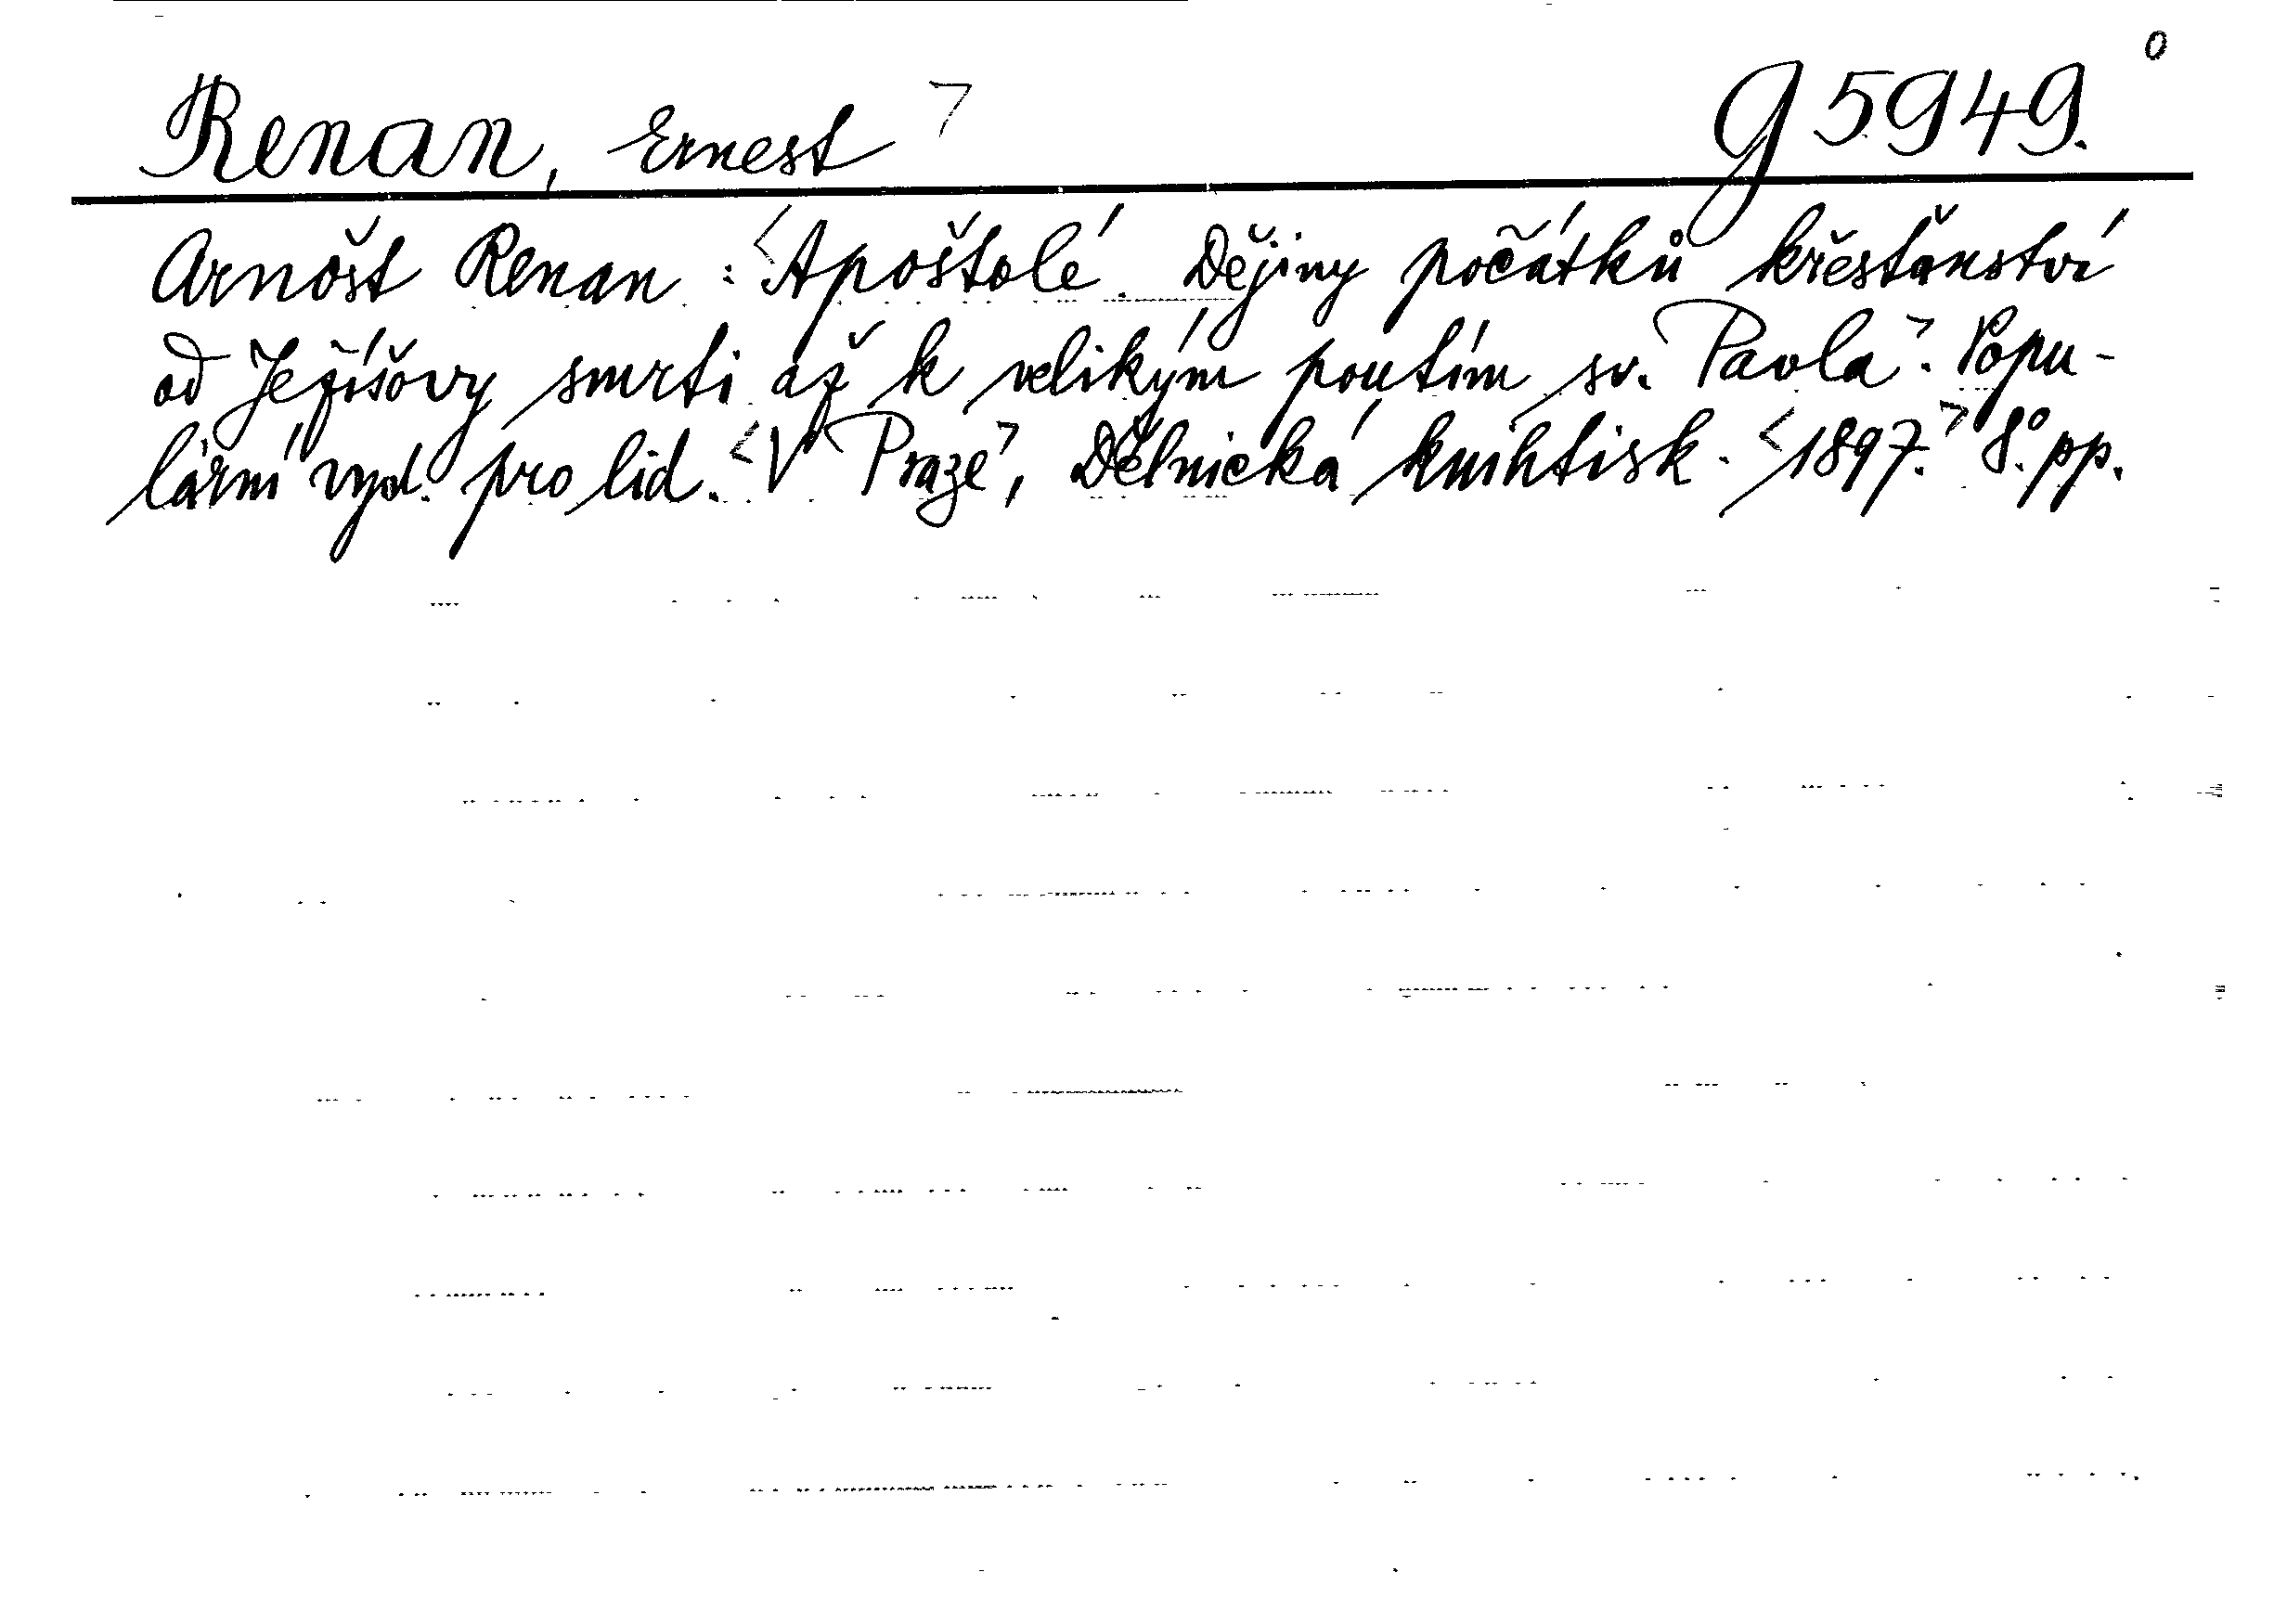 Renan, Ernest ㄱ g 5949. 0
Arnošt Renan: <Apoštolé. Dějiny počátků křesťanství
od Ježíšovy smrti až k velikým poutím sv. Pavla>. Popu-
lární vyd. pro lid. <V Praze>, Dělnická knihtisk. <1897.> 8°. pp.